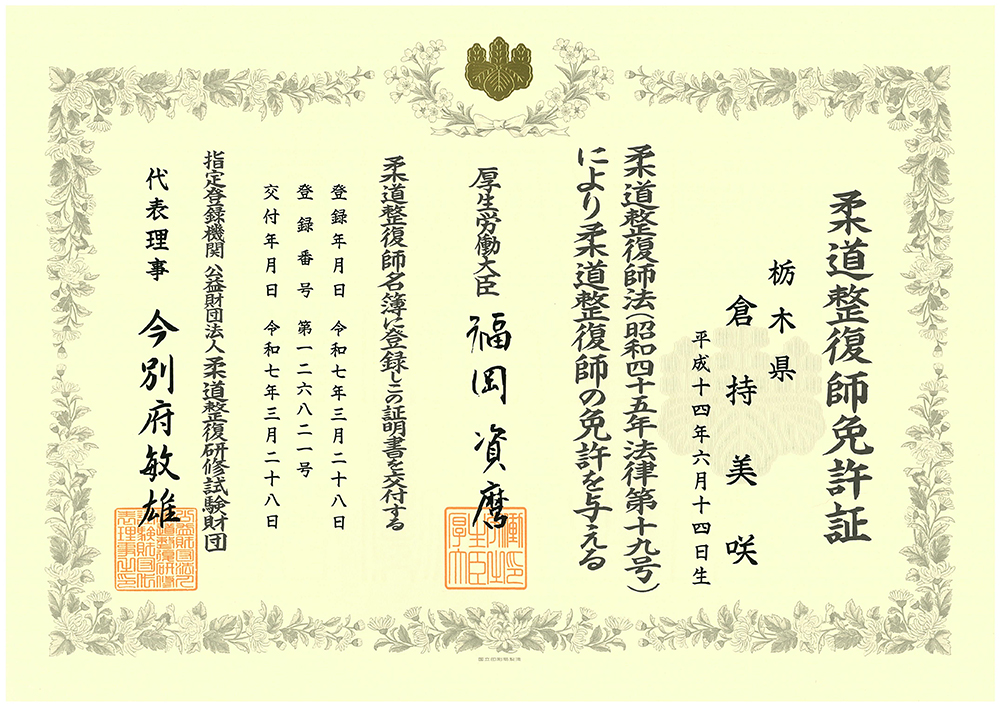 柔道整復師免許証
栃木県
倉持美咲
平成十四年六月十四日生
柔道整復師法(昭和四十五年法律第十九号)
により柔道整復師の免許を与える
厚生労働大臣 福岡資麿
柔道整復師名簿に登録しこの証明書を交付する
登録年月日 令和七年三月二十八日
登録番号 第一二六八二一号
交付年月日 令和七年三月二十八日
指定登録機関 公益財団法人柔道整復研修試験財団
代表理事 今別府敏雄